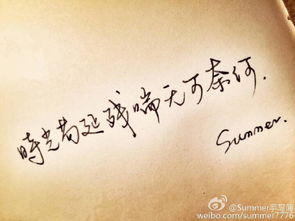 時光苟延残喘无可奈何.
Summer.
@Summer手写簿
weibo.com/summer7776